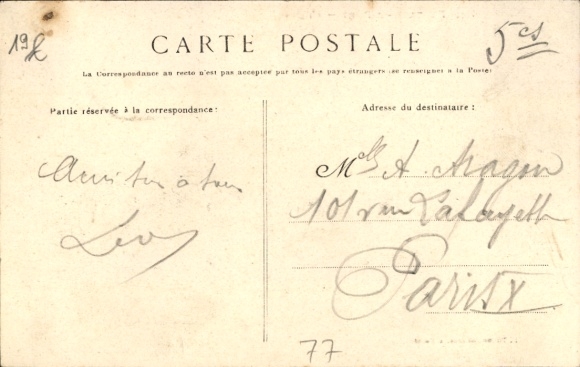 19
5 cs
CARTE POSTALE
La Correspondance au recto n'est pas acceptée par tous les pays étrangers (se renseigner à la Poste)
Partie réservée à la correspondance:
Adresse du destinataire :
Amitiés à tous
Léon
Mlle A. Aragon
101 rue Lafayette
Paris X
77